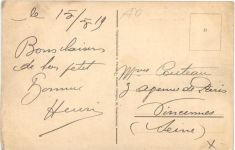 le 15/8 19
Bons baisers
de ton petit
Bonnus
Henri
Mme Couteau
3 avenue de Paris
Vincennes
(Seine)